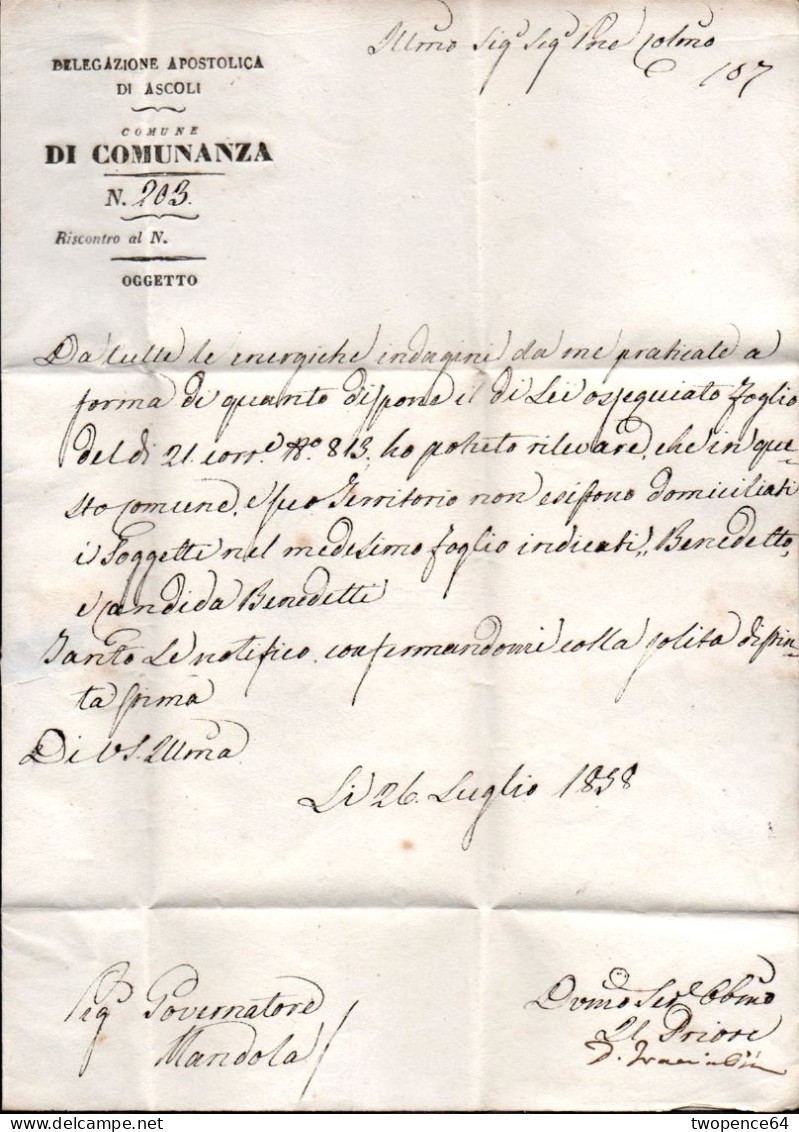 Illmo Sigr Sigr Pne Colmo
107
DELEGAZIONE APOSTOLICA
DI ASCOLI
COMUNE
DI COMUNANZA
N. 203.
Riscontro al N.
OGGETTO
Da tutte le energiche indagini da me praticate a
forma di quanto dispone il di Lei ossequiato foglio
del dì 21. corre. No. 813, ho potuto rilevare, che in que-
sto Comune, e suo Territorio non esistono domiciliati
i Soggetti nel medesimo foglio indicati,, Benedetto,
e Candida Benedetti
Tanto Le notifico confermandomi colla solita distin-
ta stima
Di VS. Illma
Li 26. Luglio 1858
Sigr Governatore
Mandola
Dvmo Serv Obbmo
Il Priore
twopence64